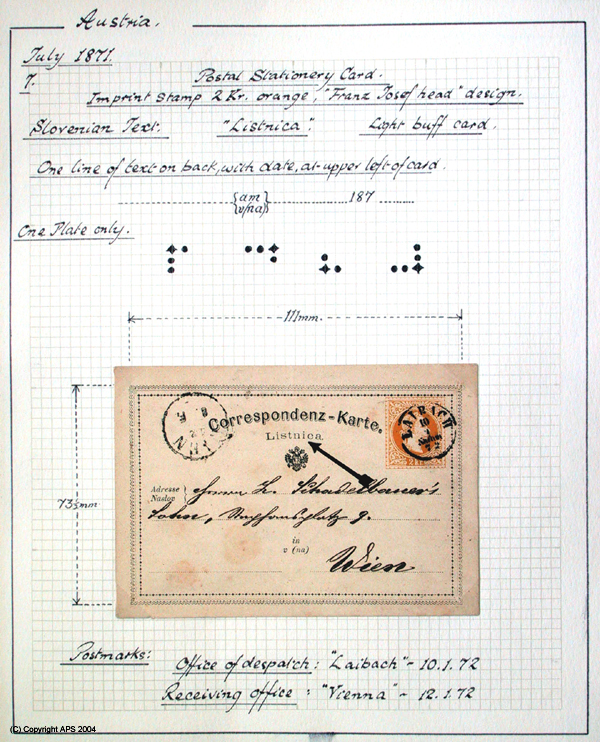 Austria.
July 1871.
7. Postal Stationery Card.
Imprint Stamp 2 Kr. orange, "Franz Josef head" design.
Slovenian Text. "Listnica". Light buff card.
One line of text on back, with date, at upper left of card.
{am
{v/na)} 187
One Plate only.
111mm.
Correspondenz-Karte.
LAIBACH
10
72
Listnica.
73½mm
Adresse
Naslov
Herrn
Sohn, 9.
in
v (na)
Wien
Postmarks: Office of despatch: "Laibach" - 10.1.72
Receiving office: "Vienna" - 12.1.72
(C) Copyright APS 2004